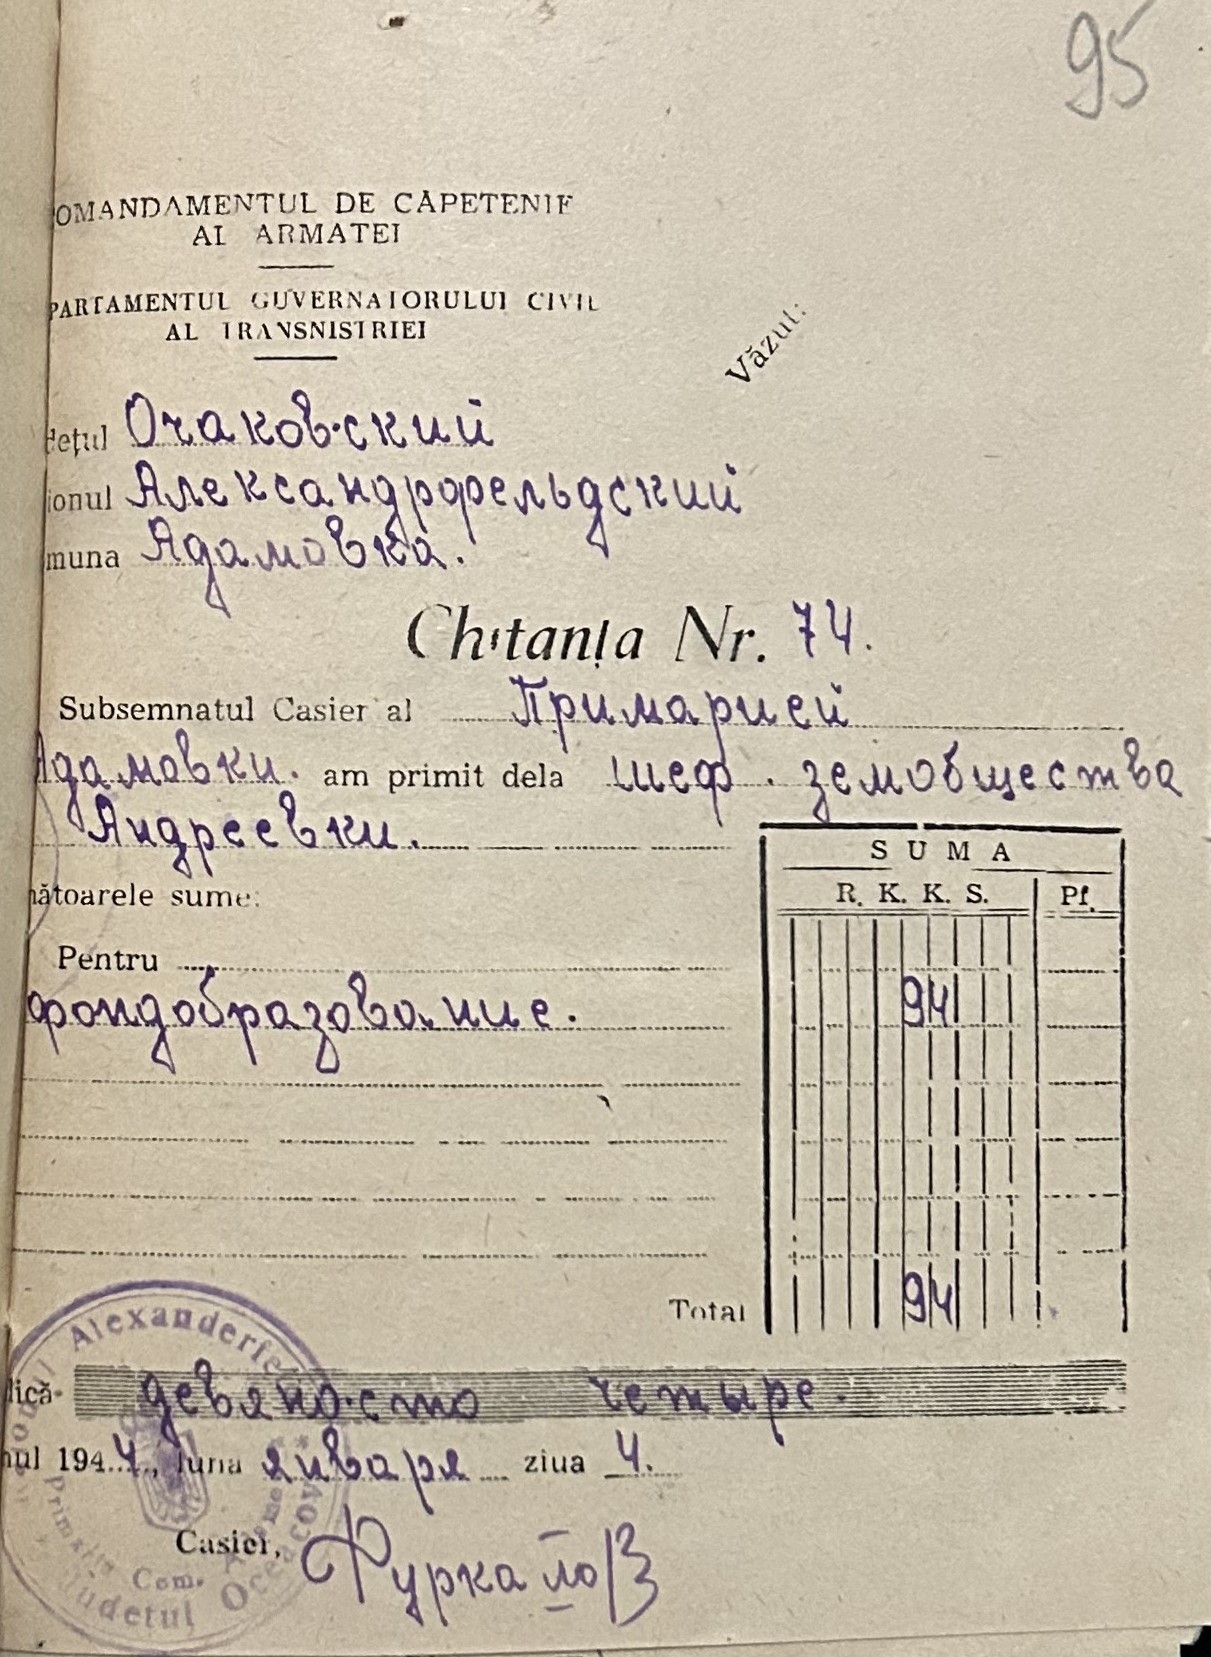 95
OMANDAMENTUL DE CĂPETENIE
AL ARMATEI
PARTAMENTUL GUVERNATORULUI CIVIL
AL TRANSNISTRIEI
Văzut:
dețul Очаковский
ionul Александрфельдский
muna Адамовка.
Chitanța Nr. 74.
Subsemnatul Casier al Примарией
Адамовки. am primit dela шеф. земобщества
Андреевки.
nătoarele sume:
SUMA
R. K. K. S. Pf.
Pentru
фондобразование. 94
Total 94
dică девяносто четыре.
nul 1944, luna января ziua 4.
Casier,
Primăria Com.
Judetul Oceacov